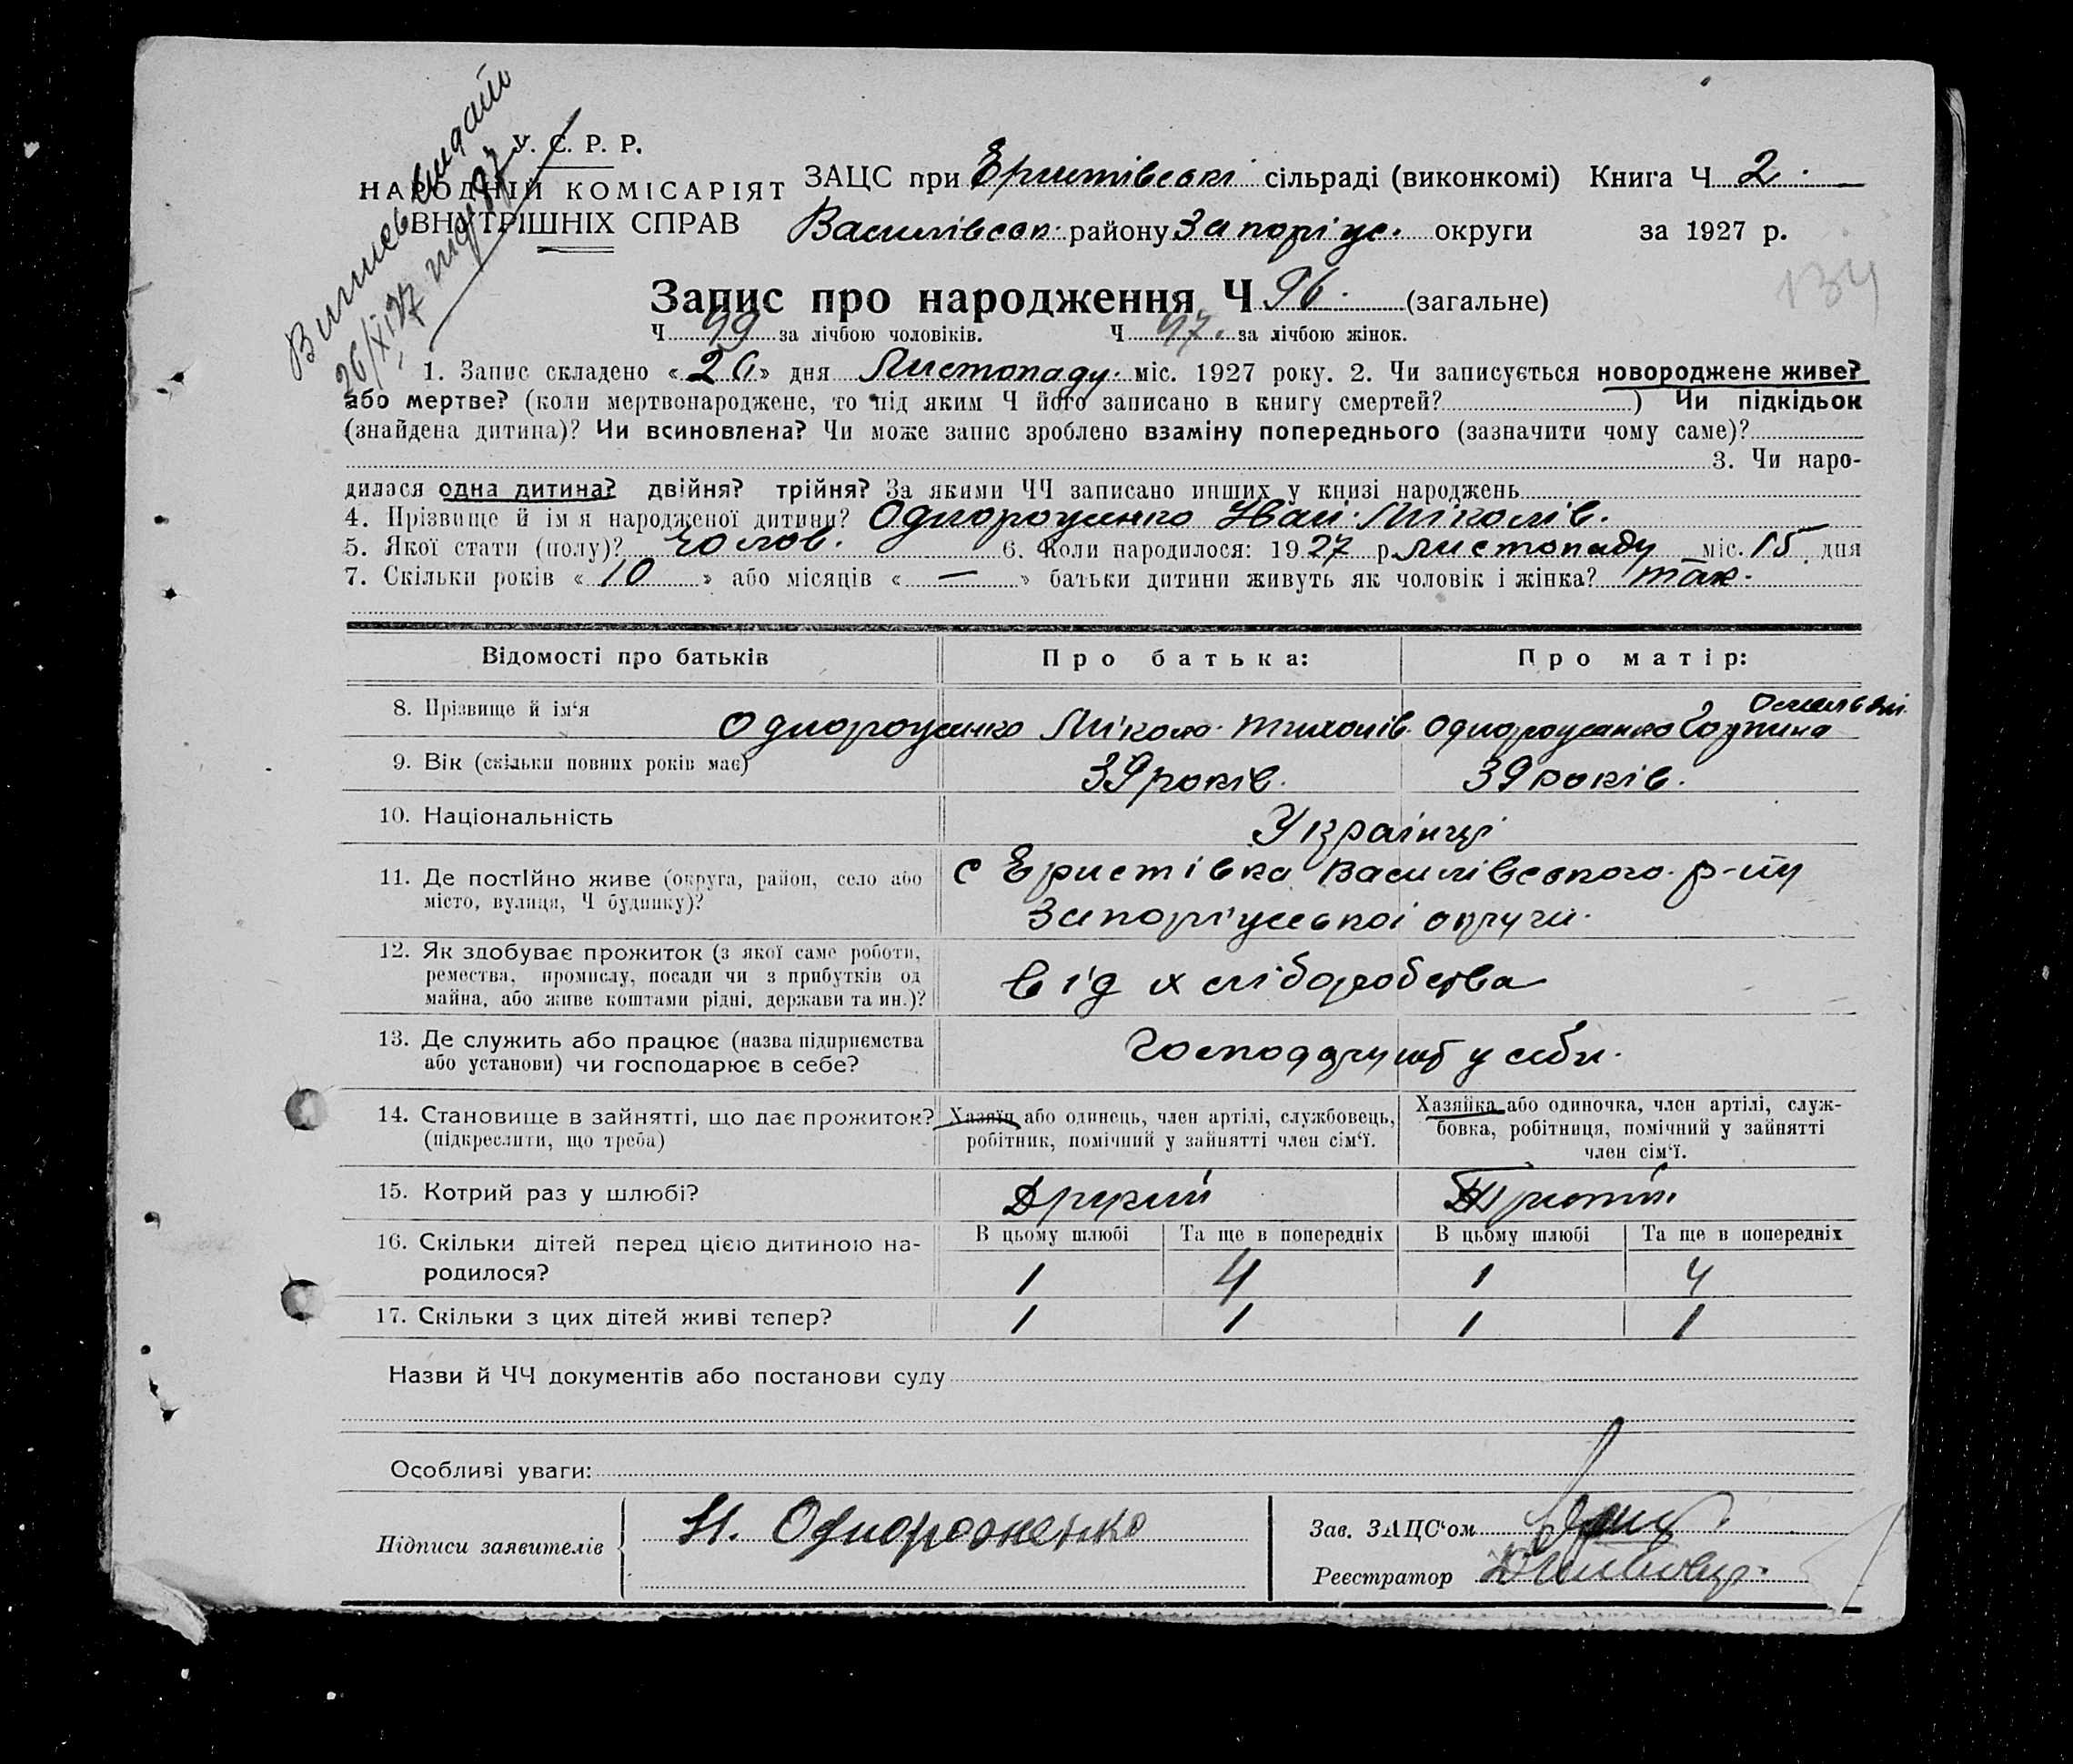 Виписъ видано
26/XI 27
У. С. Р. Р.
НАРОДНІЙ КОМІСАРІЯТ
ВНУТРІШНІХ СПРАВ
ЗАЦС при Еристівські сільраді (виконкомі) Книга Ч 2.
Василівськ. району Запоріж. округи за 1927 р.
134
Запис про народження Ч 96. (загальне)
Ч 49 за лічбою чоловіків. Ч 47. за лічбою жінок.
1. Запис складено «26» дня Листопаду. міс. 1927 року. 2. Чи записується новороджене живе?
або мертве? (коли мертвонароджене, то під яким Ч його записано в книгу смертей?) Чи підкідьок
(знайдена дитина)? Чи всиновлена? Чи може запис зроблено взаміну попереднього (зазначити чому саме)?
3. Чи наро-
дилася одна дитина? двійня? трійня? За якими ЧЧ записано инших у книзі народжень
4. Прізвище й ім'я народженої дитини? Однороженко Іван Міколів.
5. Якої стати (полу)? Чолов. 6. Коли народилося: 1927 р. листопаду міс. 15 дня
7. Скільки років «10» або місяців «—» батьки дитини живуть як чоловік і жінка? так.
Відомості про батьків Про батька: Про матір:
8. Прізвище й ім'я Однороженко Міколо Тихонів. Однороженко
9. Вік (скільки повних років має) 39 років. 39 років.
10. Національність Українці
11. Де постійно живе (округа, район, село або місто, вулиця, Ч будинку)? с Еристівка Василівського р-ну
Запоріжської округи.
12. Як здобуває прожиток (з якої саме роботи,
ремества, промислу, посади чи з прибутків од
майна, або живе коштами рідні, держави та ин.)? від хліборобства
13. Де служить або працює (назва підприємства
або установи) чи господарює в себе? Господарують у себи.
14. Становище в зайнятті, що дає прожиток?
(підкреслити, що треба)
Хазяїн або одинець, член артілі, службовець,
робітник, помічний у зайнятті член сім'ї.
Хазяйка або одиночка, член артілі, служ-
бовка, робітниця, помічний у зайнятті
член сім'ї.
15. Котрий раз у шлюбі? Другий Третій
16. Скільки дітей перед цією дитиною на-
родилося?
В цьому шлюбі Та ще в попередніх В цьому шлюбі Та ще в попередніх
1 4 1 4
17. Скільки з цих дітей живі тепер? 1 1 1 1
Назви й ЧЧ документів або постанови суду
Особливі уваги:
Підписи заявителів Н. Однороженко
Зав. ЗАЦС'ом
Реєстратор